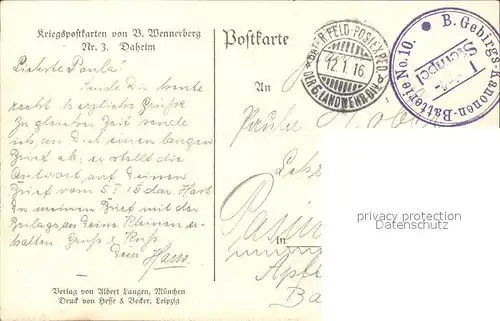 Kriegspostkarten von B. Wennerberg
Nr. 3. Daheim
Postkarte
BAYER. FELD-POSTEXPED.
12.1.16
DER 6. LANDWEHR-DIV.
B. Gebirgs-Kanonen-Batterie No. 10.
Stempel
Liebste Paula!
Sende Dir heute
recht herzliche Grüße
Zu gleicher Zeit sende
ich an Dich einen langen
Brief ab; er stellt die
Antwort auf Deinen
Brief vom 5.I.16 dar. Hast
Du meinen Brief mit der
Zulage an Deine Kleinen er-
halten Gruß & Kuß
Dein Hans
An
Paula
in
privacy protection
Datenschutz
Verlag von Albert Langen, München
Druck von Hesse & Becker, Leipzig